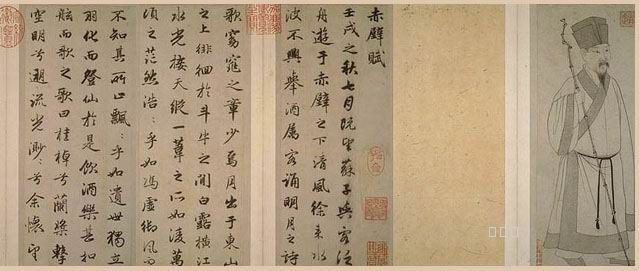 赤壁賦
壬戌之秋七月既望蘇子與客泛
舟遊于赤壁之下清風徐來水
波不興舉酒属客誦明月之詩
歌窈窕之章少焉月出于東山
之上徘徊於斗牛之間白露橫江
水光接天縱一葦之所如淩萬
頃之茫然浩〻乎如馮虛御風而
不知其所止飄〻乎如遺世獨立
羽化而登仙於是飲酒樂甚扣
舷而歌之歌曰桂棹兮蘭槳擊
空明兮遡流光渺〻兮余懷望